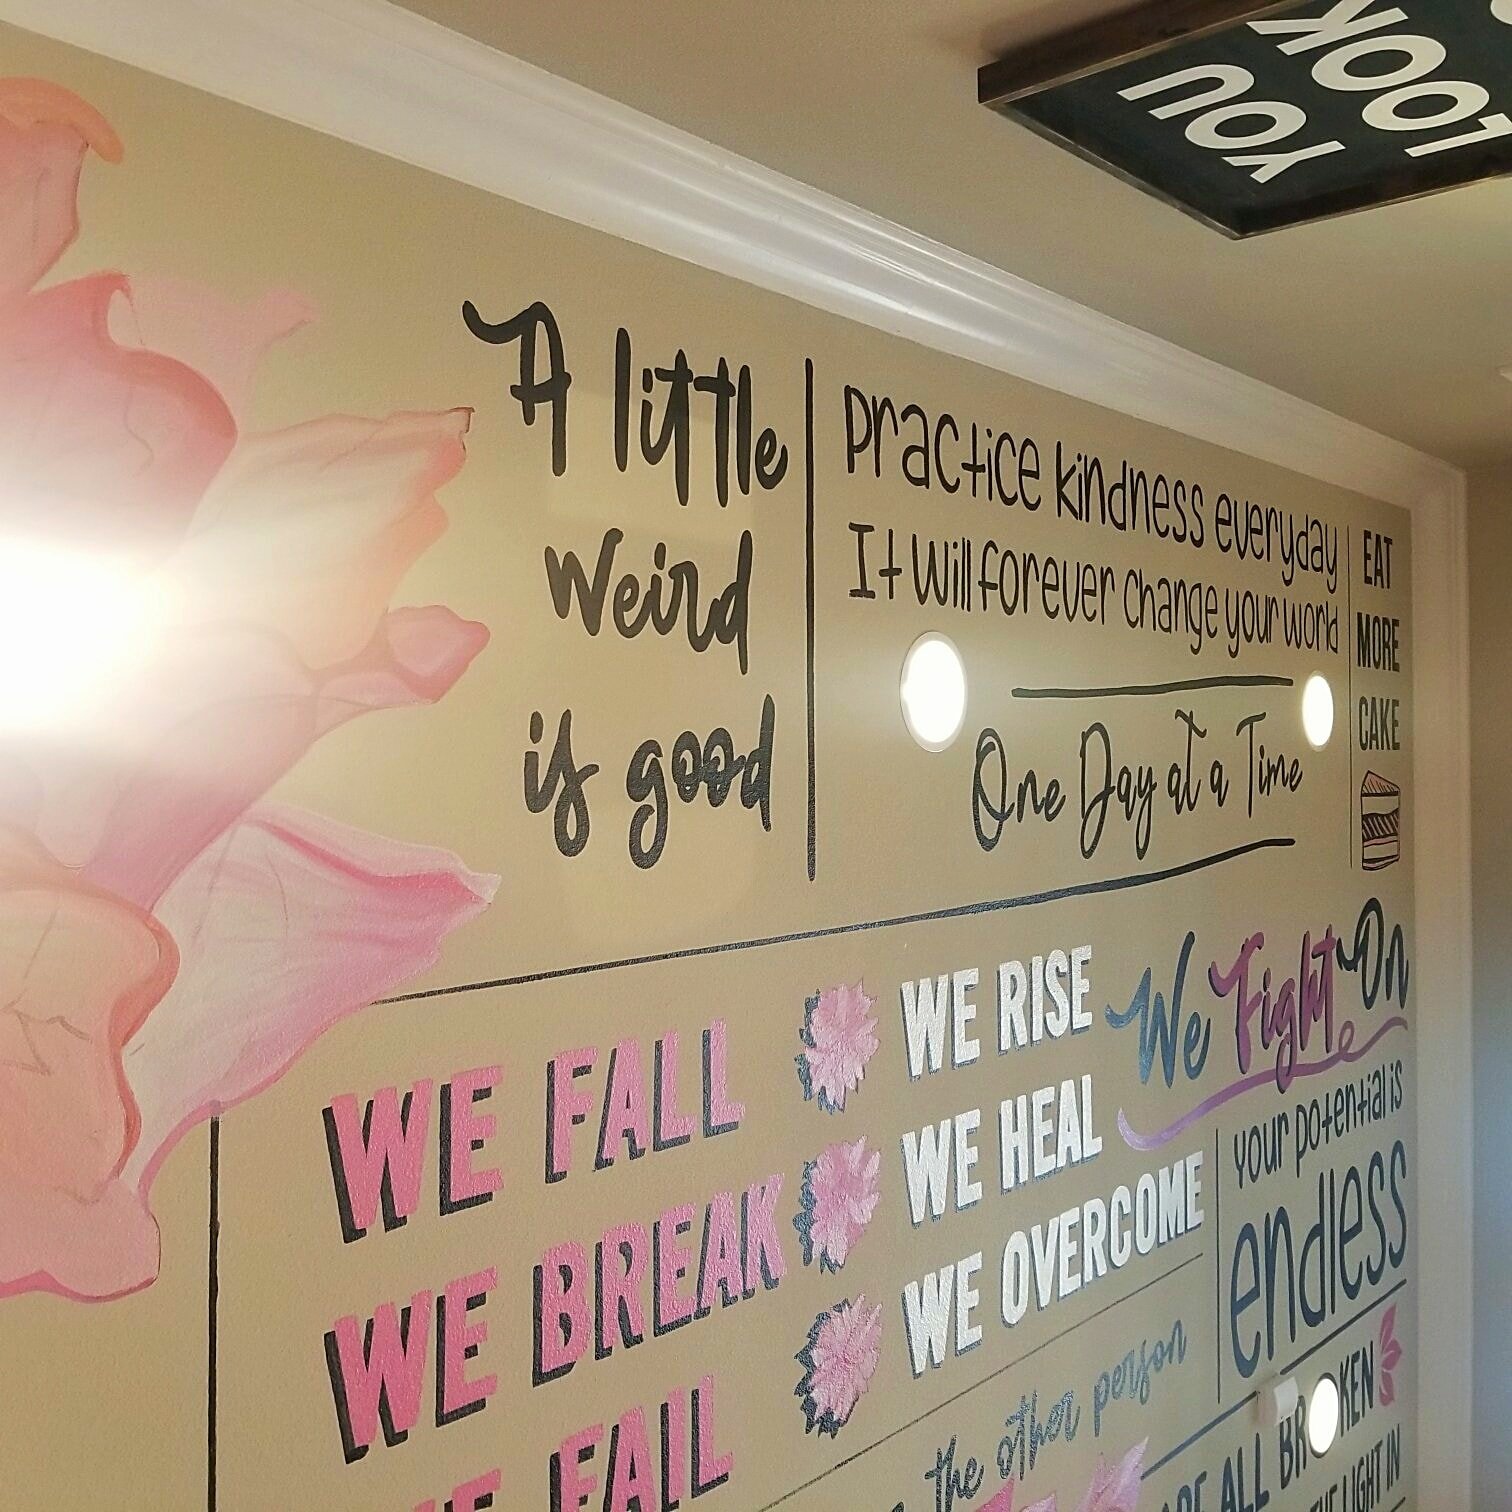 YOU
LOOK
A little
weird
is good
practice kindness everyday
It will forever change your world
One Day at a Time
EAT
MORE
CAKE
WE FALL
WE BREAK
FAIL
WE RISE
WE HEAL
WE OVERCOME
We Fight On
your potential is
endless
the other person
ALL BROKEN
LIGHT IN